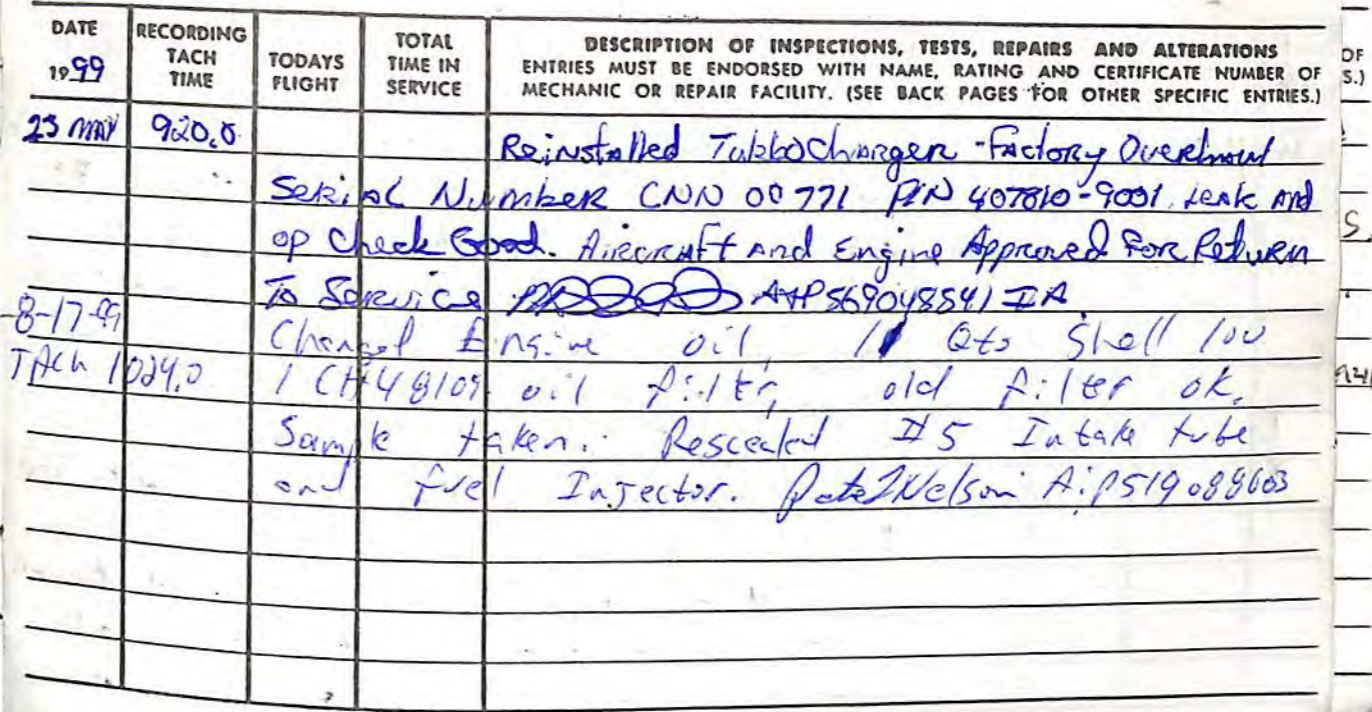 DATE
1999
RECORDING
TACH
TIME
TODAYS
FLIGHT
TOTAL
TIME IN
SERVICE
DESCRIPTION OF INSPECTIONS, TESTS, REPAIRS AND ALTERATIONS
ENTRIES MUST BE ENDORSED WITH NAME, RATING AND CERTIFICATE NUMBER OF
MECHANIC OR REPAIR FACILITY. (SEE BACK PAGES FOR OTHER SPECIFIC ENTRIES.)
OF
S.)
23 MAY 920.0 Reinstalled TurboCharger - Factory Overhaul
Serial Number CNN 00771 P/N 407810-9001. Leak And
op Check Good. Aircraft And Engine Approved For Return
To Service A+P 569048541 IA
8-17-99 Changed Engine oil, 11 Qts Shell 100
TACH 1024.0 1 CH48109 oil filter, old filter ok.
Sample taken. Rescealed #5 Intake tube
and fuel Injector. Nelson A:P519088603